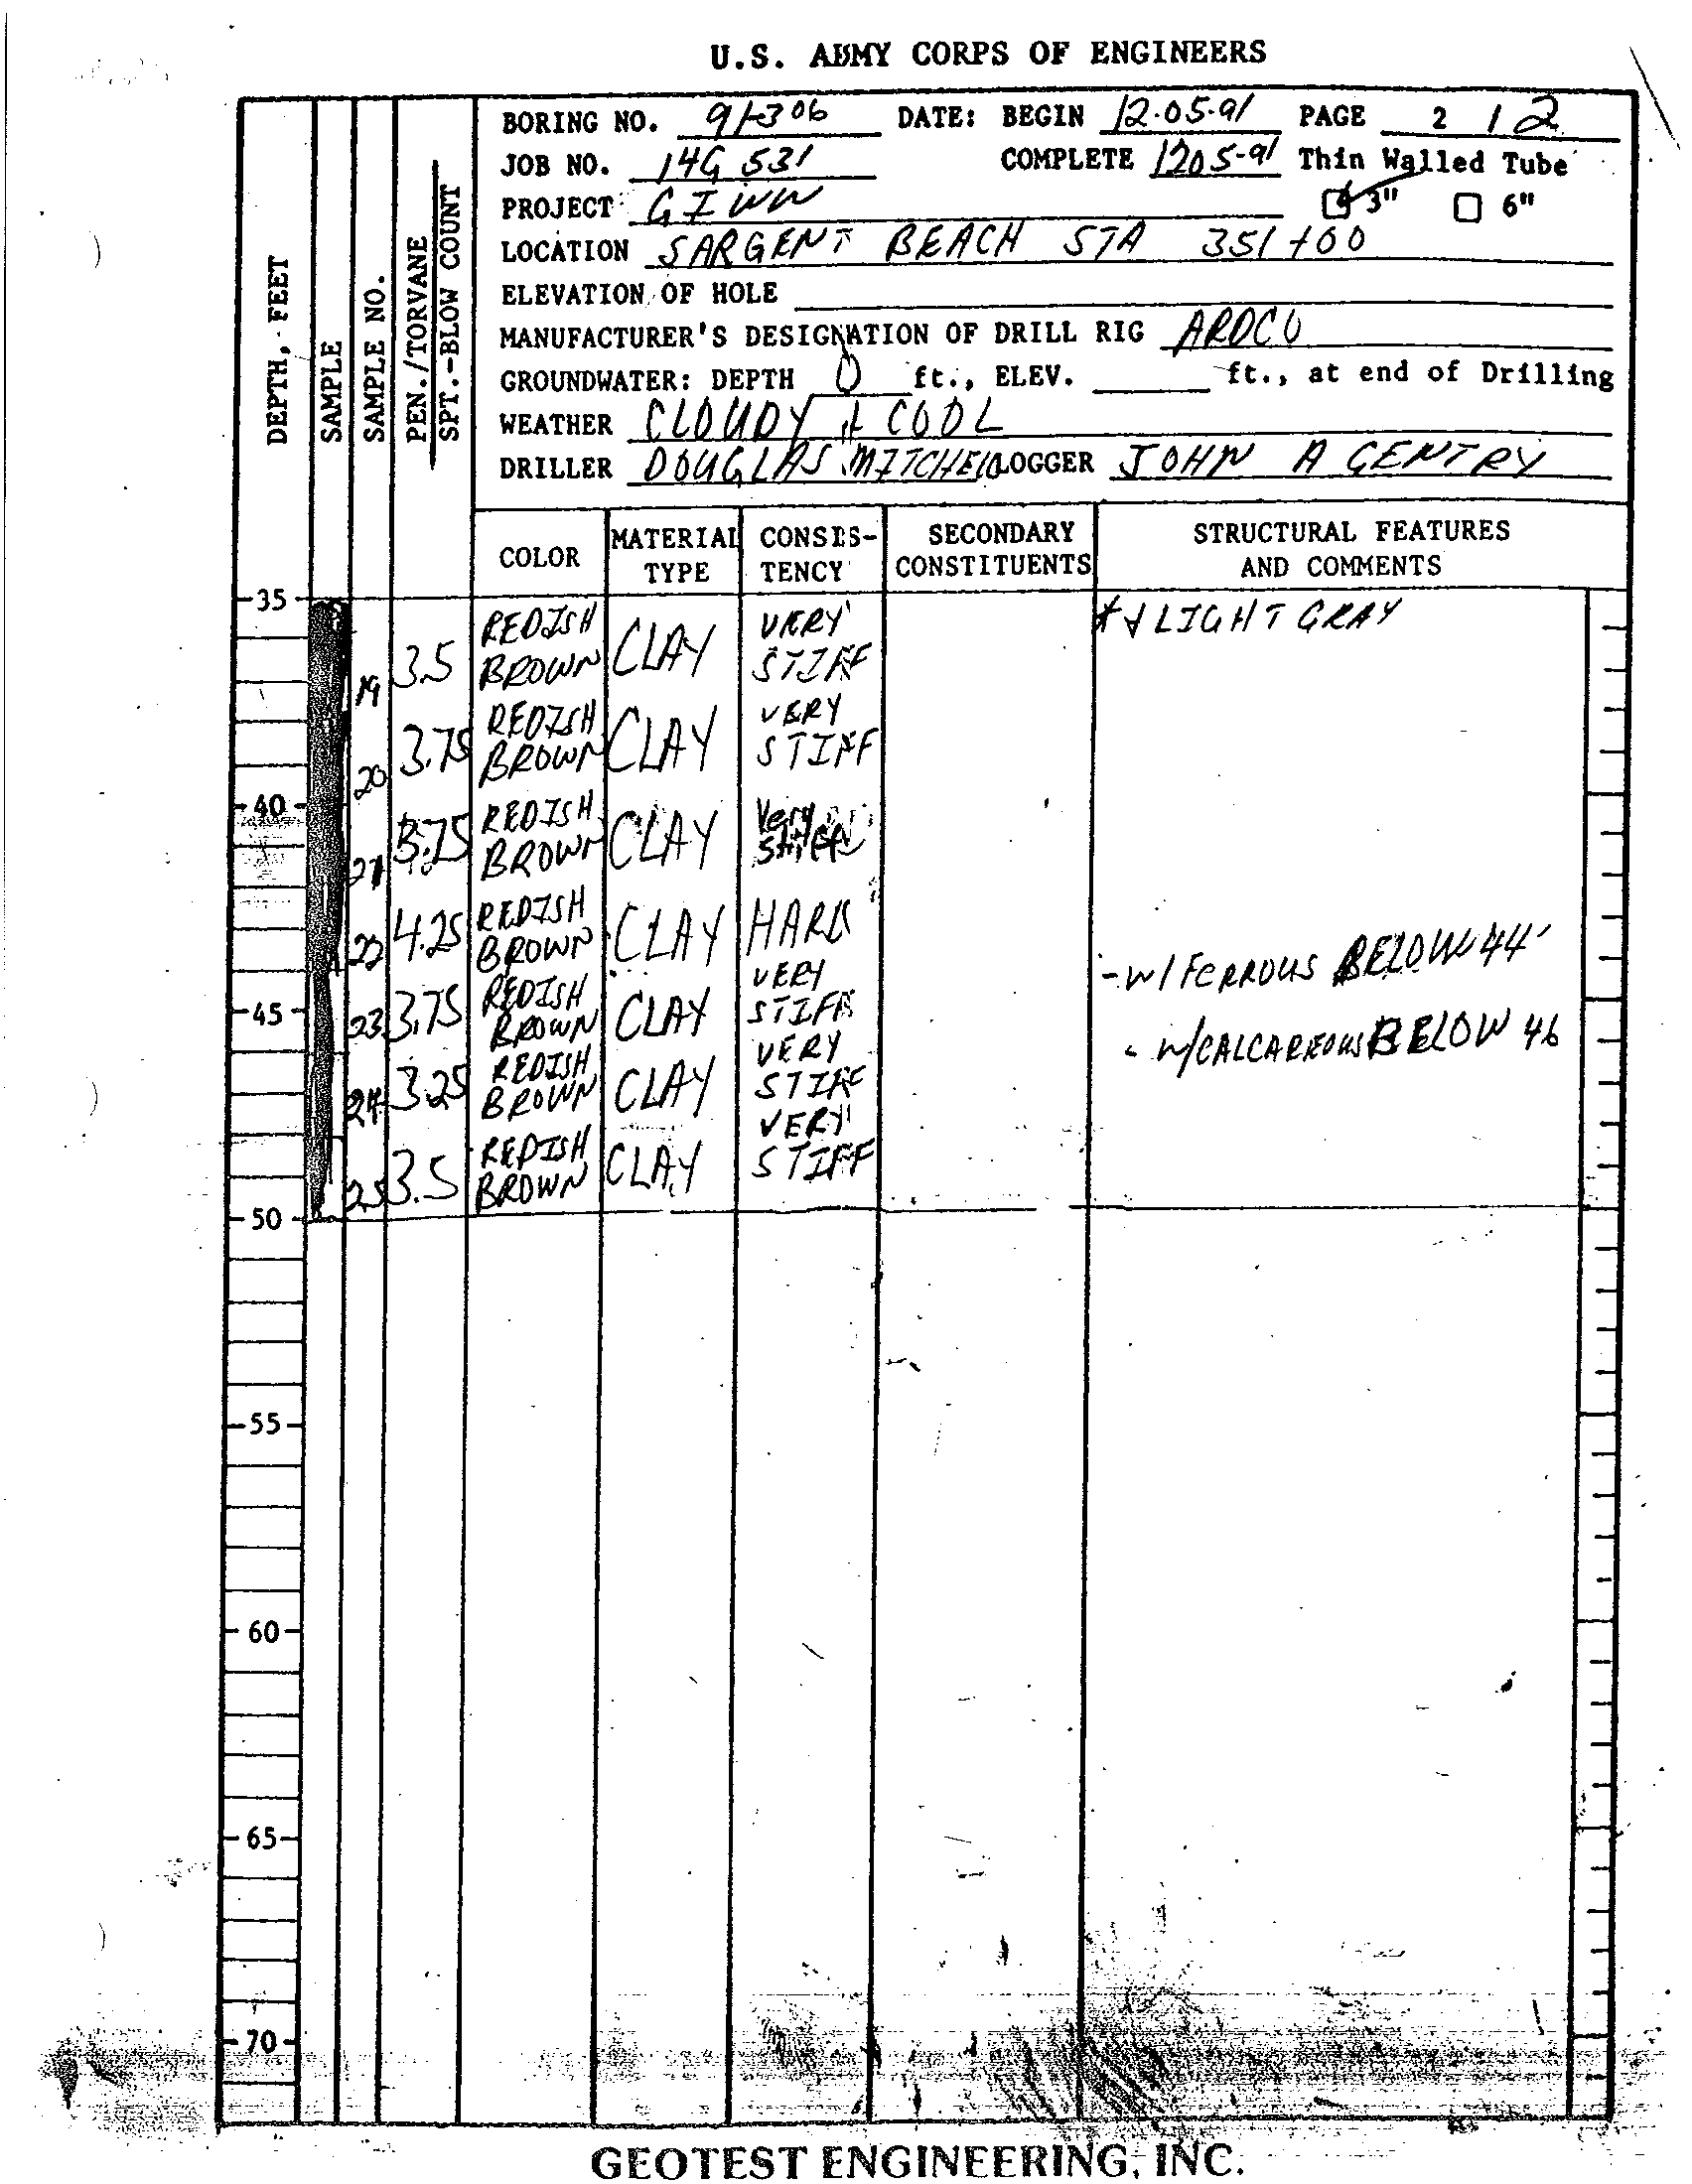 U.S. ARMY CORPS OF ENGINEERS
BORING NO. 91-306 DATE: BEGIN 12-05-91 PAGE 2 / 2
JOB NO. 14G 531 COMPLETE 1205-91 Thin Walled Tube
PROJECT GIWW 3" 6"
LOCATION SARGENT BEACH STA 351+00
ELEVATION OF HOLE
MANUFACTURER'S DESIGNATION OF DRILL RIG ARDCO
GROUNDWATER: DEPTH 0 ft., ELEV. ft., at end of Drilling
WEATHER CLOUDY + COOL
DRILLER DOUGLAS MITCHELL LOGGER JOHN A GENTRY
DEPTH, FEET
SAMPLE
SAMPLE NO.
PEN./TORVANE
SPT.-BLOW COUNT
COLOR MATERIAL TYPE CONSIS-TENCY SECONDARY CONSTITUENTS STRUCTURAL FEATURES AND COMMENTS
35
REDISH VERY LIGHT GRAY
19 3.5 BROWN CLAY STIFF
REDISH VERY
20 3.75 BROWN CLAY STIFF
40
REDISH Very
21 3.75 BROWN CLAY Stiff
REDISH
22 4.25 BROWN CLAY HARD
- W/ FERROUS BELOW 44'
REDISH VERY
45 23 3.75 BROWN CLAY STIFF
- W/CALCAREOUS BELOW 46
REDISH VERY
24 3.25 BROWN CLAY STIFF
REDISH VERY
25 3.5 BROWN CLAY STIFF
50
55
60
65
70
GEOTEST ENGINEERING, INC.